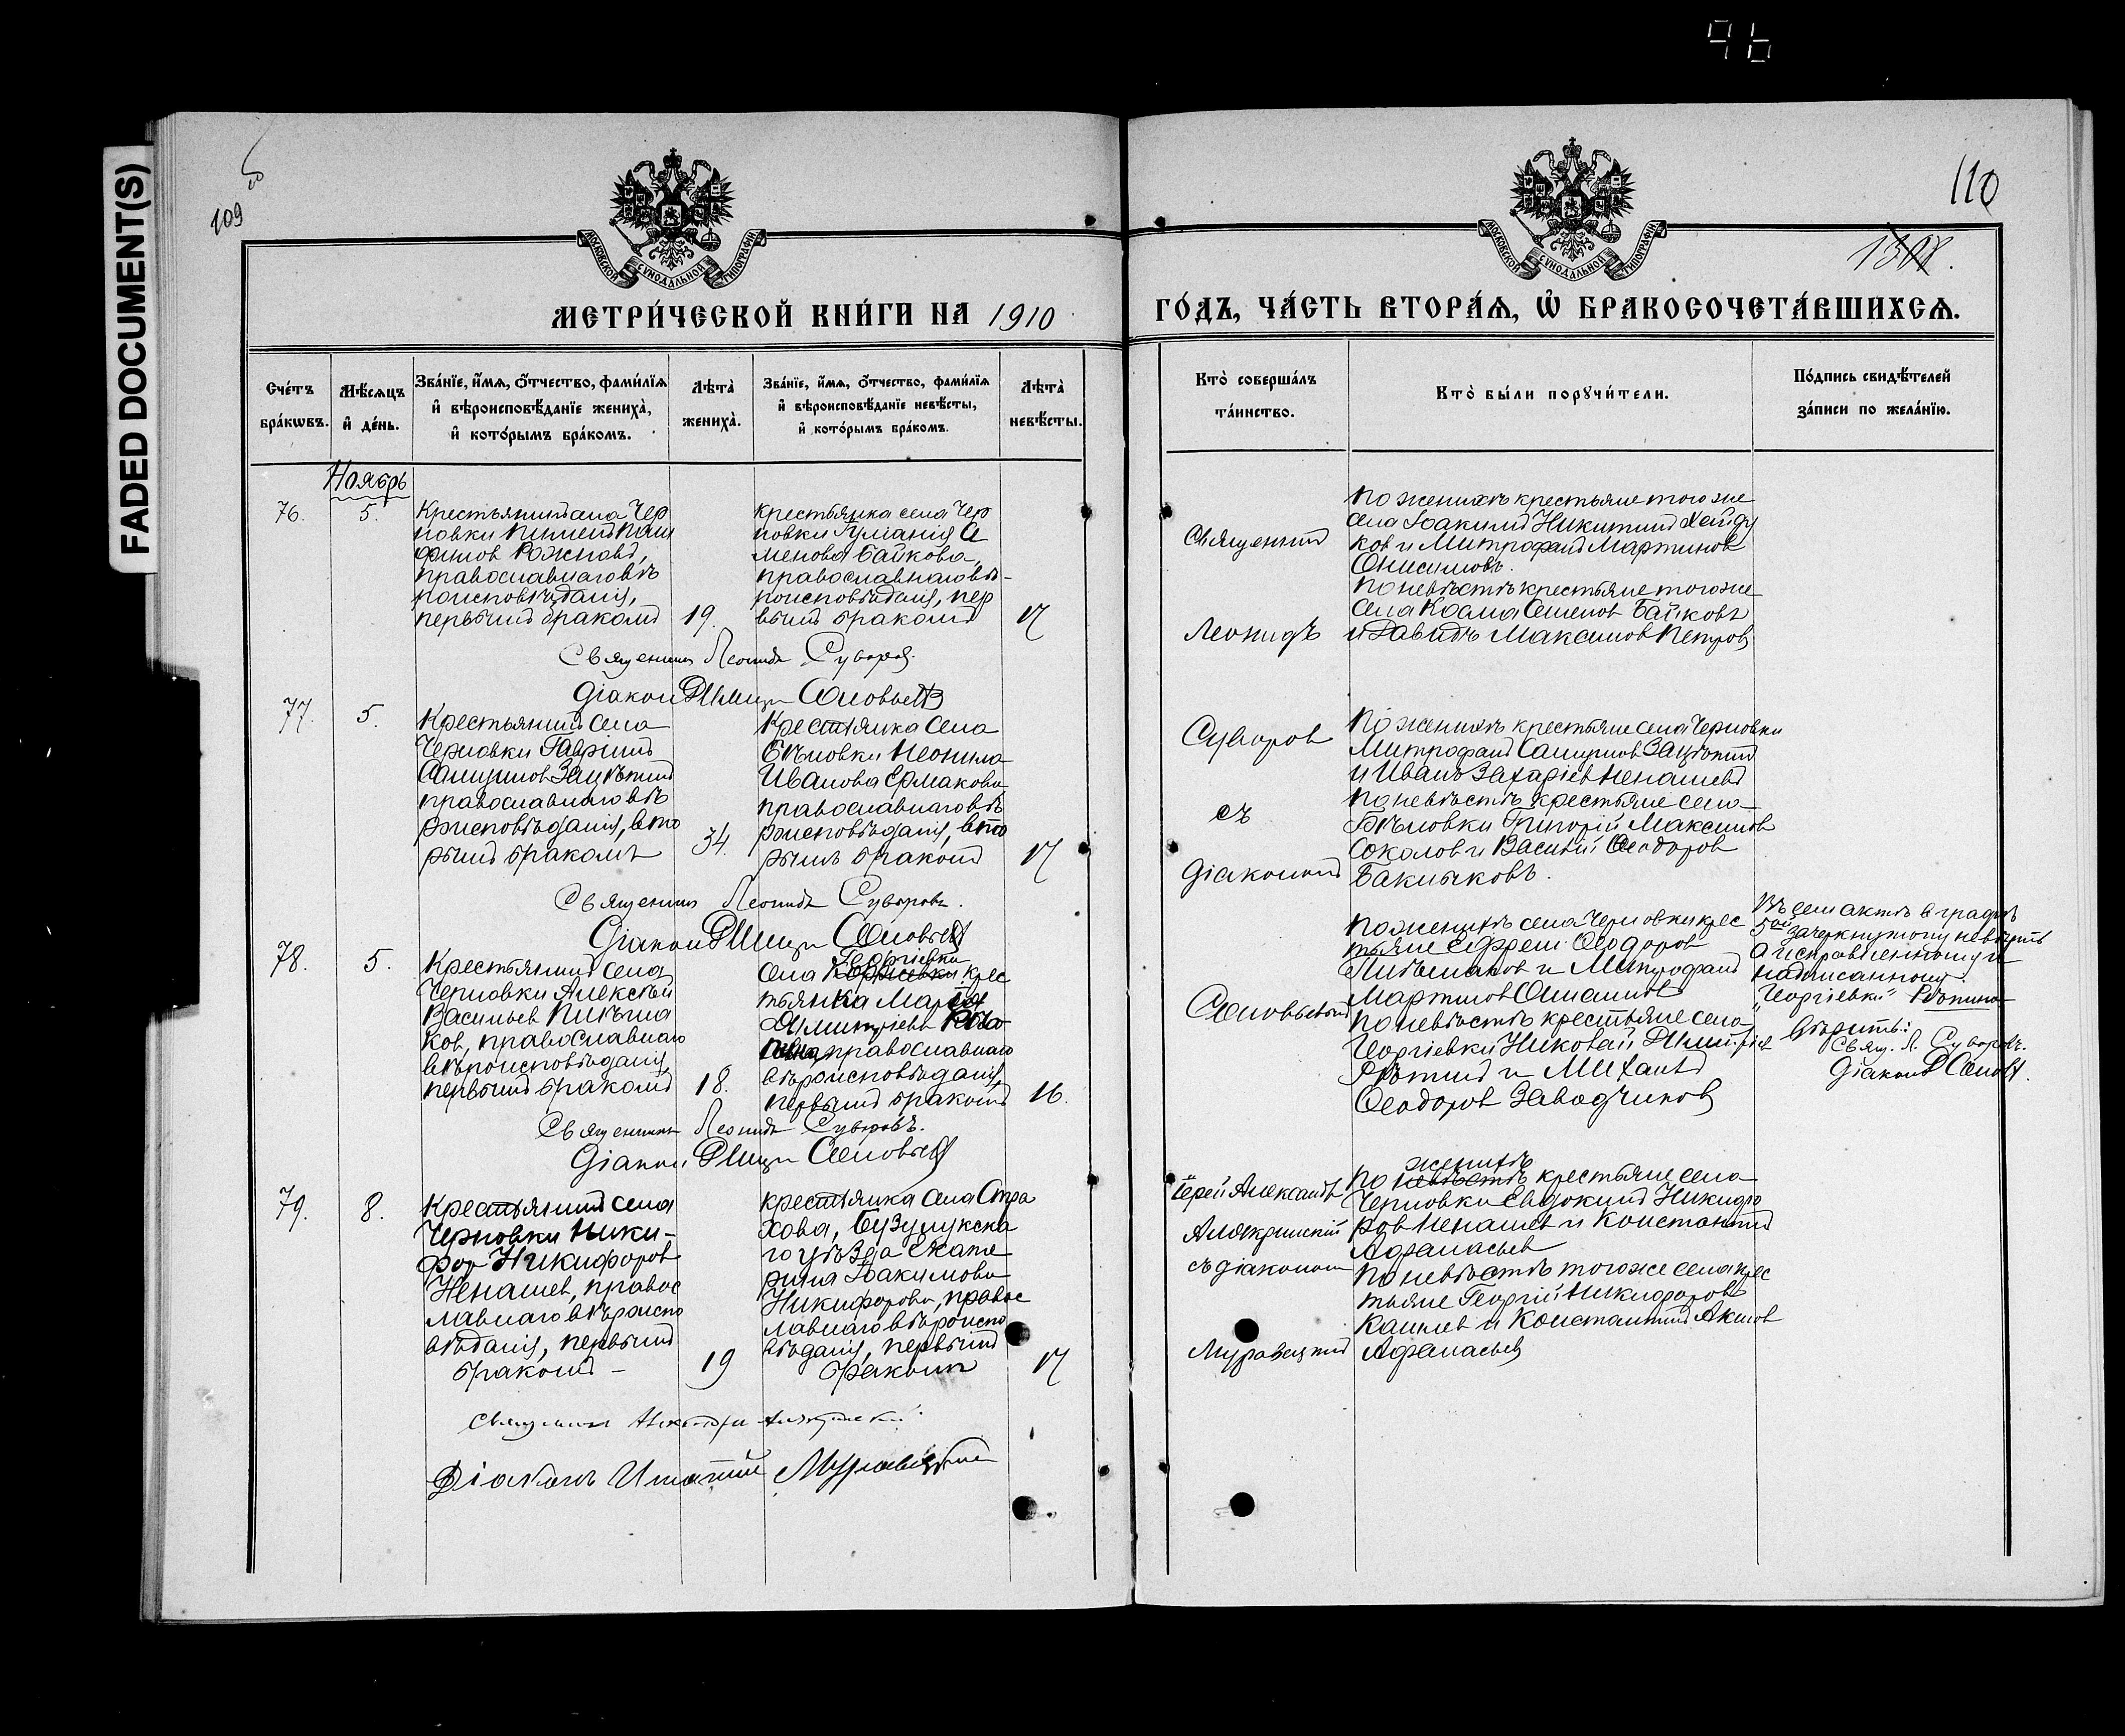 96
FADED DOCUMENT(S)
109
110
МОСКОВСКОЙ СУНОДАЛЬНОЙ ТИПОГРАФІИ
МОСКОВСКОЙ СУНОДАЛЬНОЙ ТИПОГРАФІИ
МЕТРИ́ЧЕСКОЙ КНИ́ГИ НА 1910
ГО́ДЪ, ЧА́СТЬ ВТОРА́Ѧ, Ѽ БРАКОСОЧЕТА́ВШИХСѦ.
Сче́тъ бра́кѡвъ.
Мѣ́сѧцъ и҆ де́нь.
Зва́нїе, и҆́мѧ, ѻ҆́тчество, фами́лїѧ
и҆ вѣроисповѣ́данїе жениха̀,
и҆ кото́рымъ бра́комъ.
Лѣта̀ жениха̀.
Зва́нїе, и҆́мѧ, ѻ҆́тчество, фами́лїѧ
и҆ вѣроисповѣ́данїе невѣ́сты,
и҆ кото́рымъ бра́комъ.
Лѣта̀ невѣ́сты.
Кто̀ соверша́лъ та́инство.
Кто̀ бы́ли порꙋчи́тели.
По́дпись свидѣ́телей
за́писи по жела́нїю.
Ноябрь
76.
5.
Крестьянинъ села Чер
новки Пименъ
Рожновъ,
православнаго вѣ
роисповѣданія,
первымъ бракомъ
19.
крестьянка села Чер
новки
Байкова,
православнаго вѣ-
роисповѣданія, пер
вымъ бракомъ
17
Священникъ
Леонидъ
По женихѣ крестьяне того же
села Іоакимъ Никитинъ
ков и Митрофанъ Мартинов
Анисимовъ.
По невѣстѣ крестьяне того же
села Косма Семенов Байковъ
и Давидъ Максимов Петров
Священникъ Леонидъ Суворов.
Діакон Соловьевъ
77.
5.
Крестьянинъ села
Черновки Гавріилъ
Самуилов Зацѣпинъ
православнаго вѣ
роисповѣданія, вто
рымъ бракомъ
34.
Крестьянка села
Бѣловки Неонила
Иванова Ермакова
православнаго вѣ
роисповѣданія, вто
рымъ бракомъ
17
Суворов
съ
діакономъ
По женихѣ крестьяне села Черновки
Митрофанъ Самуилов Зацѣпинъ
и Иванъ Захаріев Ненашевъ
По невѣстѣ крестьяне села
Бѣловки Григорій Максимов
Соколов и Василій Ѳеодоров
Баклыковъ.
Священникъ Леонидъ Суворовъ.
Діакон Соловьевъ
78.
5.
Крестьянинъ села
Черновки Алексѣй
Васильев Пикѣша
ков, православнаго
вѣроисповѣданія,
первымъ бракомъ
18.
Георгіевки
села крес
тьянка Марія
Димитріева
православнаго
вѣроисповѣданія,
первымъ бракомъ
16.
Соловьевымъ
По женихѣ села Черновки крес
тьяне Ефрем Ѳеодоров
и Митрофанъ
Мартинов
По невѣстѣ крестьяне села
Георгіевки Николай Димитріев
Рѣпинъ и Михаилъ
Ѳеодоров Заводчиков
Въ сем актѣ в графѣ
5ой зачеркнутому не вѣрить
а исправленному и
надписанному
„Георгіевки" Рѣпина
вѣрить:
Свящ. Л. Суворовъ.
Діаконъ
Священникъ Леонидъ Суворовъ.
Діакон Соловьевъ
79.
8.
Крестьянинъ села
Черновки Ники-
фор Никифоров
Ненашев, правос
лавнаго вѣроиспо
вѣданія, первымъ
бракомъ -
19
крестьянка села Стра
хова, Бузулукска
го уѣзда Екате
рина Іоакимова
Никифорова, правос
лавнаго вѣроиспо
вѣданія, первымъ
бракомъ
17
Іерей Александръ
Алякринскій
съ діакономъ
Муравецкимъ
женихѣ
По невѣстѣ крестьяне села
Черновки Евдокимъ Никифо
ров Ненашев и Константинъ
Афанасьев
По невѣстѣ того же села крес
тьяне Георгій Никифоров
и Константинъ Акимов
Афанасьев
Діаконъ